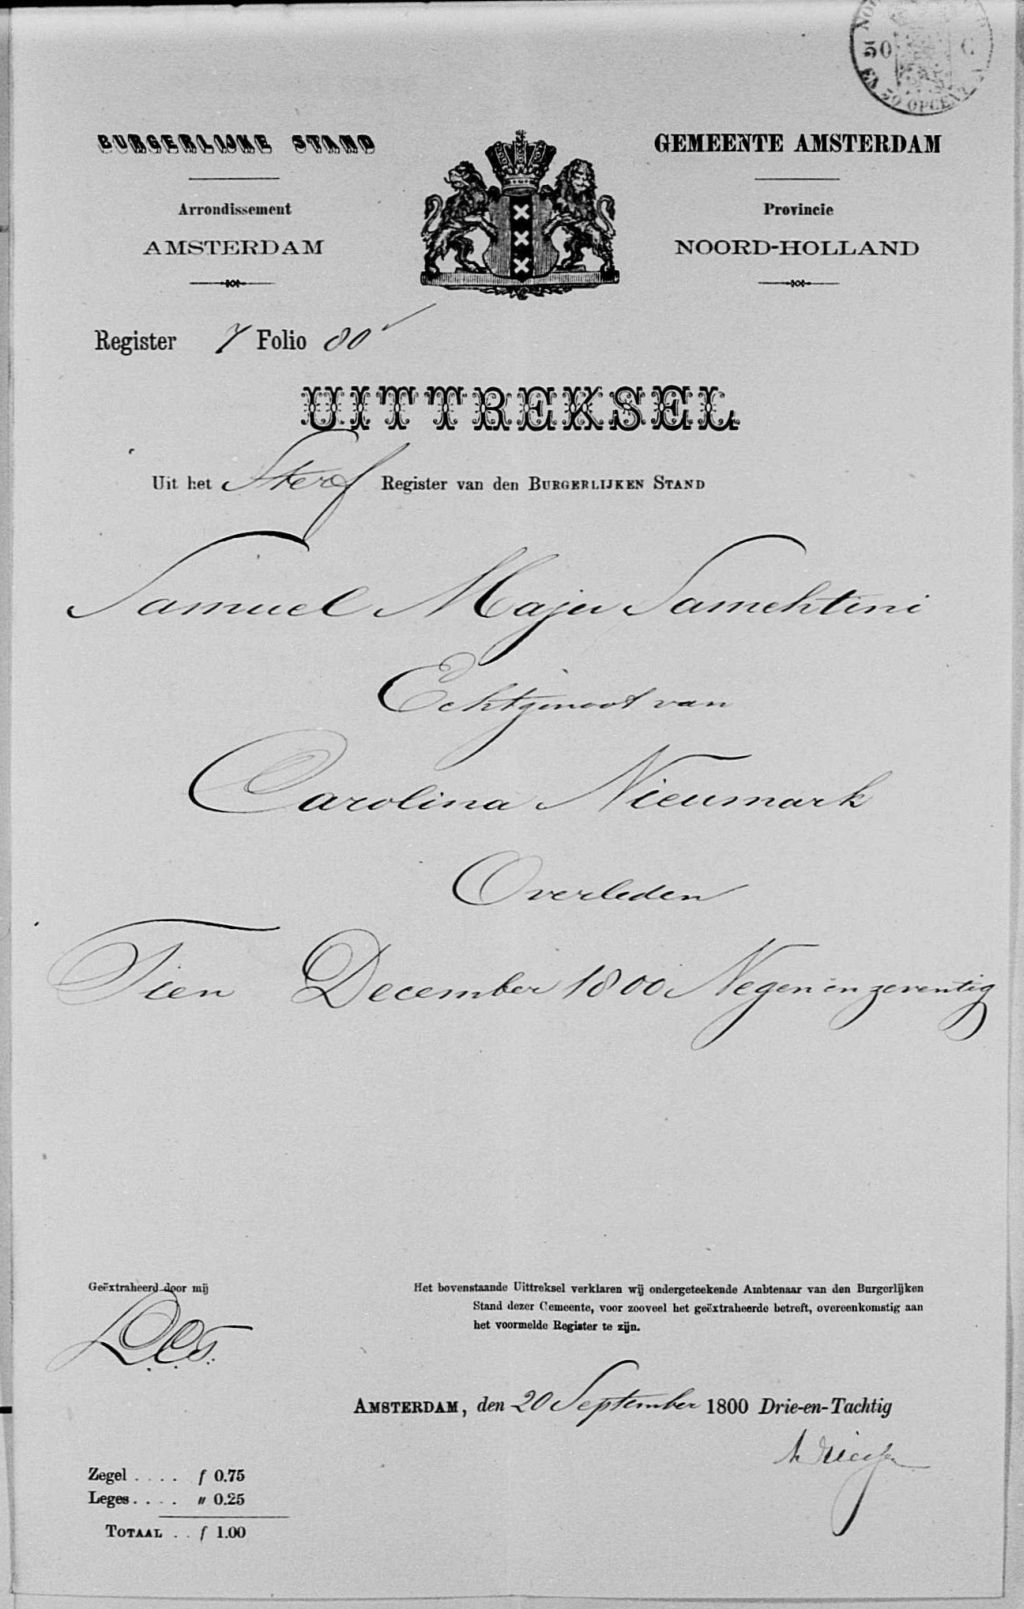 50 C
EN 50 OPCENT
BURGERLIJKE STAND
GEMEENTE AMSTERDAM
Arrondissement
Provincie
AMSTERDAM
NOORD-HOLLAND
Register 7 Folio 80
UITTREKSEL
Uit het Sterf Register van den BURGERLIJKEN STAND
Samuel Majer Samehtini
Echtgenoot van
Carolina Nieumark
Overleden
Tien December 1800 Negen en zeventig
Geëxtraheerd door mij
Het bovenstaande Uittreksel verklaren wij ondergeteekende Ambtenaar van den Burgerlijken
Stand dezer Gemeente, voor zooveel het geëxtraheerde betreft, overeenkomstig aan
het voormelde Register te zijn.
AMSTERDAM, den 20 September 1800 Drie-en-Tachtig
Zegel .... f 0.75
Leges .... " 0.25
TOTAAL .. f 1.00